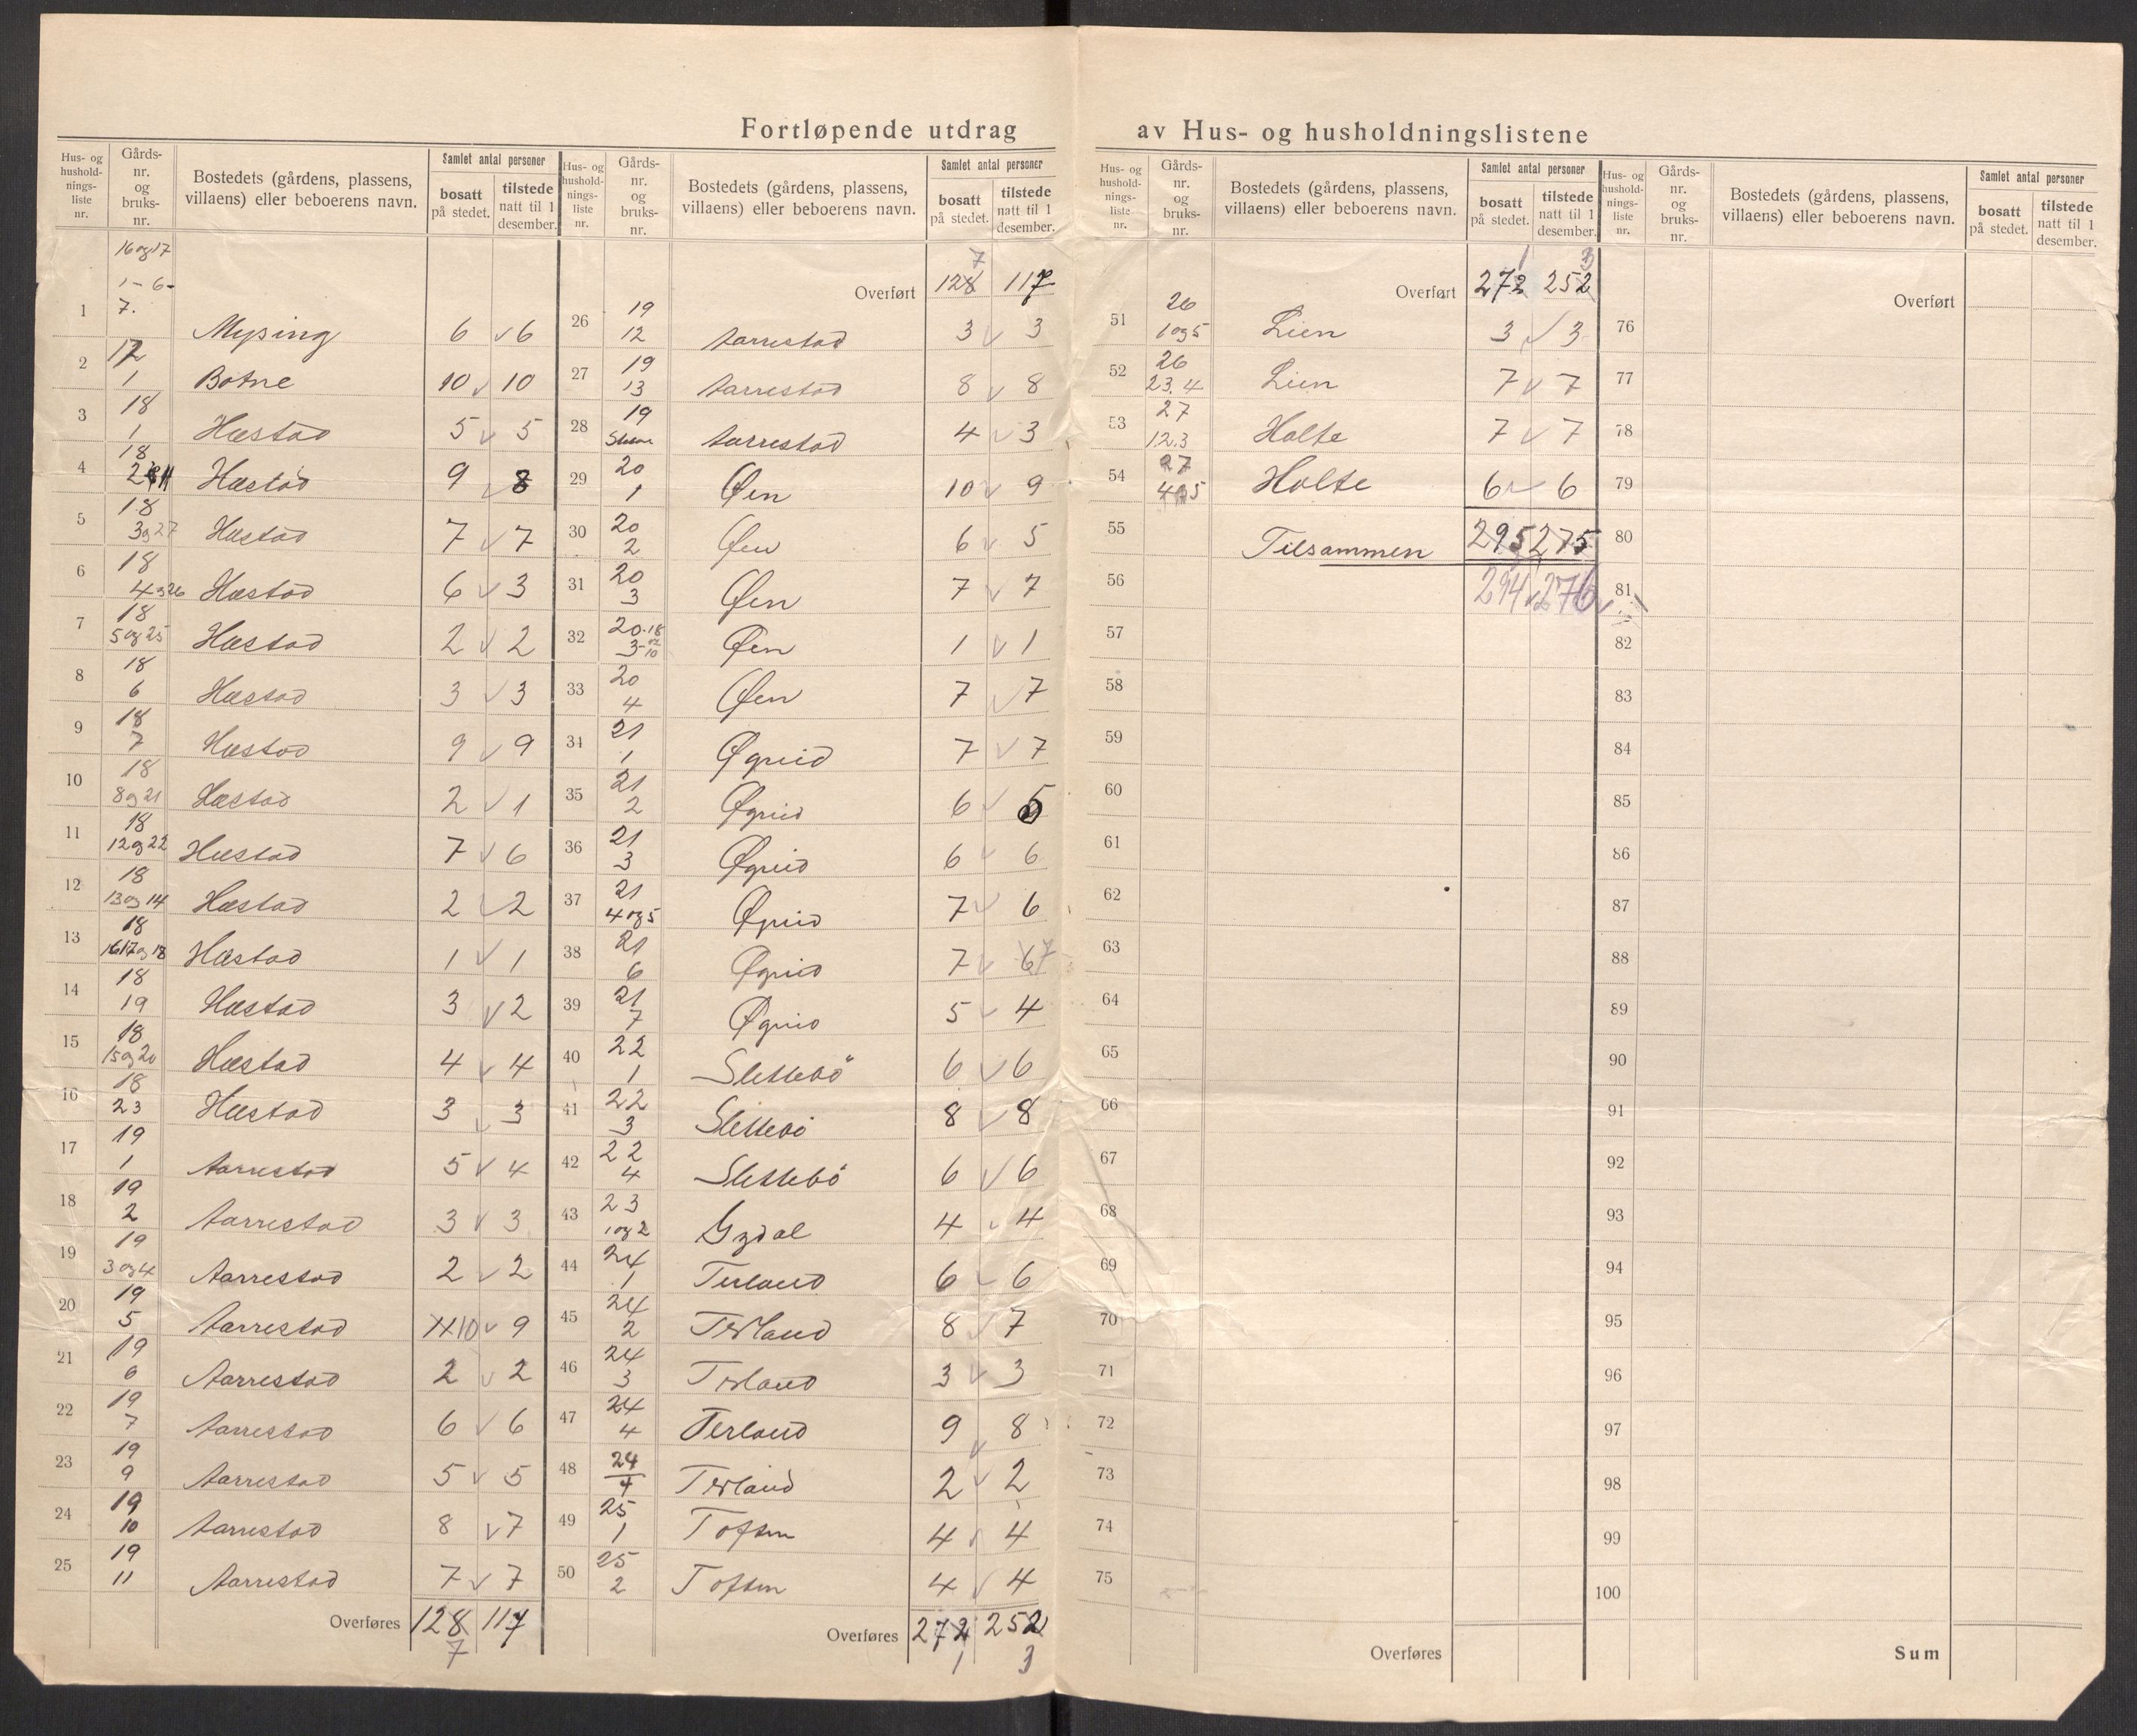 Fortløpende utdrag av Hus- og husholdningslistene
Hus- og husholdningsliste nr. | Gårds-nr. og bruks-nr. | Bostedets (gårdens, plassens, villaens) eller beboerens navn. | Samlet antal personer bosatt på stedet. | tilstede natt til 1 desember.
16og17
1-6-
1 7. Mysing 6 v 6
2 17 1 Botne 10 v 10
3 18 1 Hæstad 5 v 5
4 18 Hæstad 9 v 8
5 18 3og27 Hæstad 7 v 7
6 18 4og26 Hæstad 6 v 3
7 18 5og25 Hæstad 2 v 2
8 18 6 Hæstad 3 v 3
9 18 7 Hæstad 9 v 9
10 18 8og21 Hæstad 2 v 1
11 18 12og22 Hæstad 7 v 6
12 18 13og14 Hæstad 2 v 2
13 18 16 17og18 Hæstad 1 v 1
14 18 19 Hæstad 3 v 2
15 18 15og20 Hæstad 4 v 4
16 18 23 Hæstad 3 v 3
17 19 1 Aarrestad 5 v 4
18 19 2 Aarrestad 3 v 3
19 19 3og4 Aarrestad 2 v 2
20 19 5 Aarrestad 10 v 9
21 19 6 Aarrestad 2 v 2
22 19 7 Aarrestad 6 v 6
23 19 9 Aarrestad 5 v 5
24 19 10 Aarrestad 8 v 7
25 19 11 Aarrestad 7 v 7
Overføres 128 117
7
Hus- og husholdningsliste nr. | Gårds-nr. og bruks-nr. | Bostedets (gårdens, plassens, villaens) eller beboerens navn. | Samlet antal personer bosatt på stedet. | tilstede natt til 1 desember.
7
Overført 128 117
26 19 12 Aarrestad 3 v 3
27 19 13 Aarrestad 8 v 8
28 19 Aarrestad 4 v 3
29 20 1 Øen 10 v 9
30 20 2 Øen 6 v 5
31 20 3 Øen 7 v 7
32 20.18 3 10 Øen 1 v 1
33 20 4 Øen 7 v 7
34 21 1 Øgreid 7 v 7
35 21 2 Øgreid 6 v 5
36 21 3 Øgreid 6 v 6
37 21 4og5 Øgreid 7 v 6
38 21 6 Øgreid 7 v 6 7
39 21 7 Øgreid 5 v 4
40 22 1 Slettebö 6 v 6
41 22 3 Slettebö 8 v 8
42 22 4 Slettebö 6 v 6
43 23 1og2 Gydal 4 v 4
44 24 1 Terland 6 v 6
45 24 2 Terland 8 v 7
46 24 3 Terland 3 v 3
47 24 4 Terland 9 v 8
48 24 4 Terland 2 v 2
49 25 1 Toften 4 v 4
50 25 2 Toften 4 v 4
Overføres 272 252
1 3
Hus- og husholdningsliste nr. | Gårds-nr. og bruks-nr. | Bostedets (gårdens, plassens, villaens) eller beboerens navn. | Samlet antal personer bosatt på stedet. | tilstede natt til 1 desember.
1 3
Overført 272 252
51 26 1og5 Lien 3 v 3
52 26 23.4 Lien 7 v 7
53 27 12.3 Holte 7 v 7
54 27 4og5 Holte 6 v 6
55 Tilsammen 295 275
56 294 v 276 v
57
58
59
60
61
62
63
64
65
66
67
68
69
70
71
72
73
74
75
Overføres
Hus- og husholdningsliste nr. | Gårds-nr. og bruks-nr. | Bostedets (gårdens, plassens, villaens) eller beboerens navn. | Samlet antal personer bosatt på stedet. | tilstede natt til 1 desember.
Overført
76
77
78
79
80
81
82
83
84
85
86
87
88
89
90
91
92
93
94
95
96
97
98
99
100
Sum